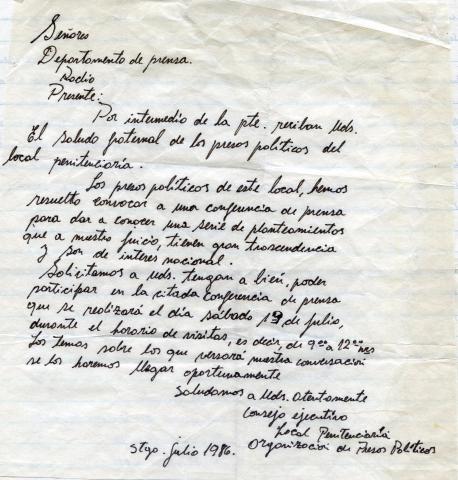 Señores
Departamento de prensa.
Radio
Presente:
Por intermedio de la pte. reciban Uds.
El saludo fraternal de los presos políticos del
local penitenciaría.
Los presos políticos de este local, hemos
resuelto convocar a una conferencia de prensa
para dar a conocer una serie de planteamientos
que a nuestro juicio, tienen gran trascendencia
y son de interes nacional.
Solicitamos a Uds. tengan a bien, poder
participar en la citada conferencia de prensa
que se realizará el día sábado 19 de julio,
durante el horario de visitas, es decir, de 9 00 a 12 00 hrs
Los temas sobre los que versará nuestra conversación
se los haremos llegar oportunamente
Saludamos a Uds. atentamente
Consejo ejecutivo
Local Penitenciaría
Organización de Presos Políticos
Stgo. julio 1986.